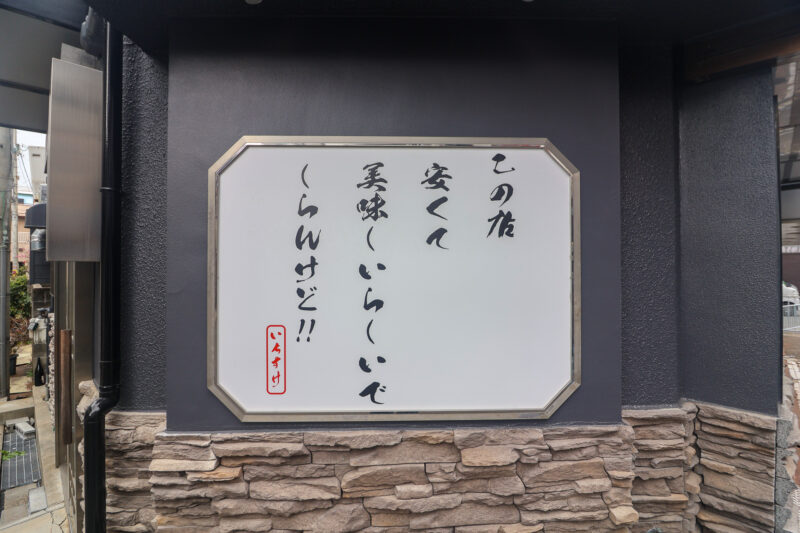 この店
安くて
美味しいらしいで
しらんけど!!
いちすけ